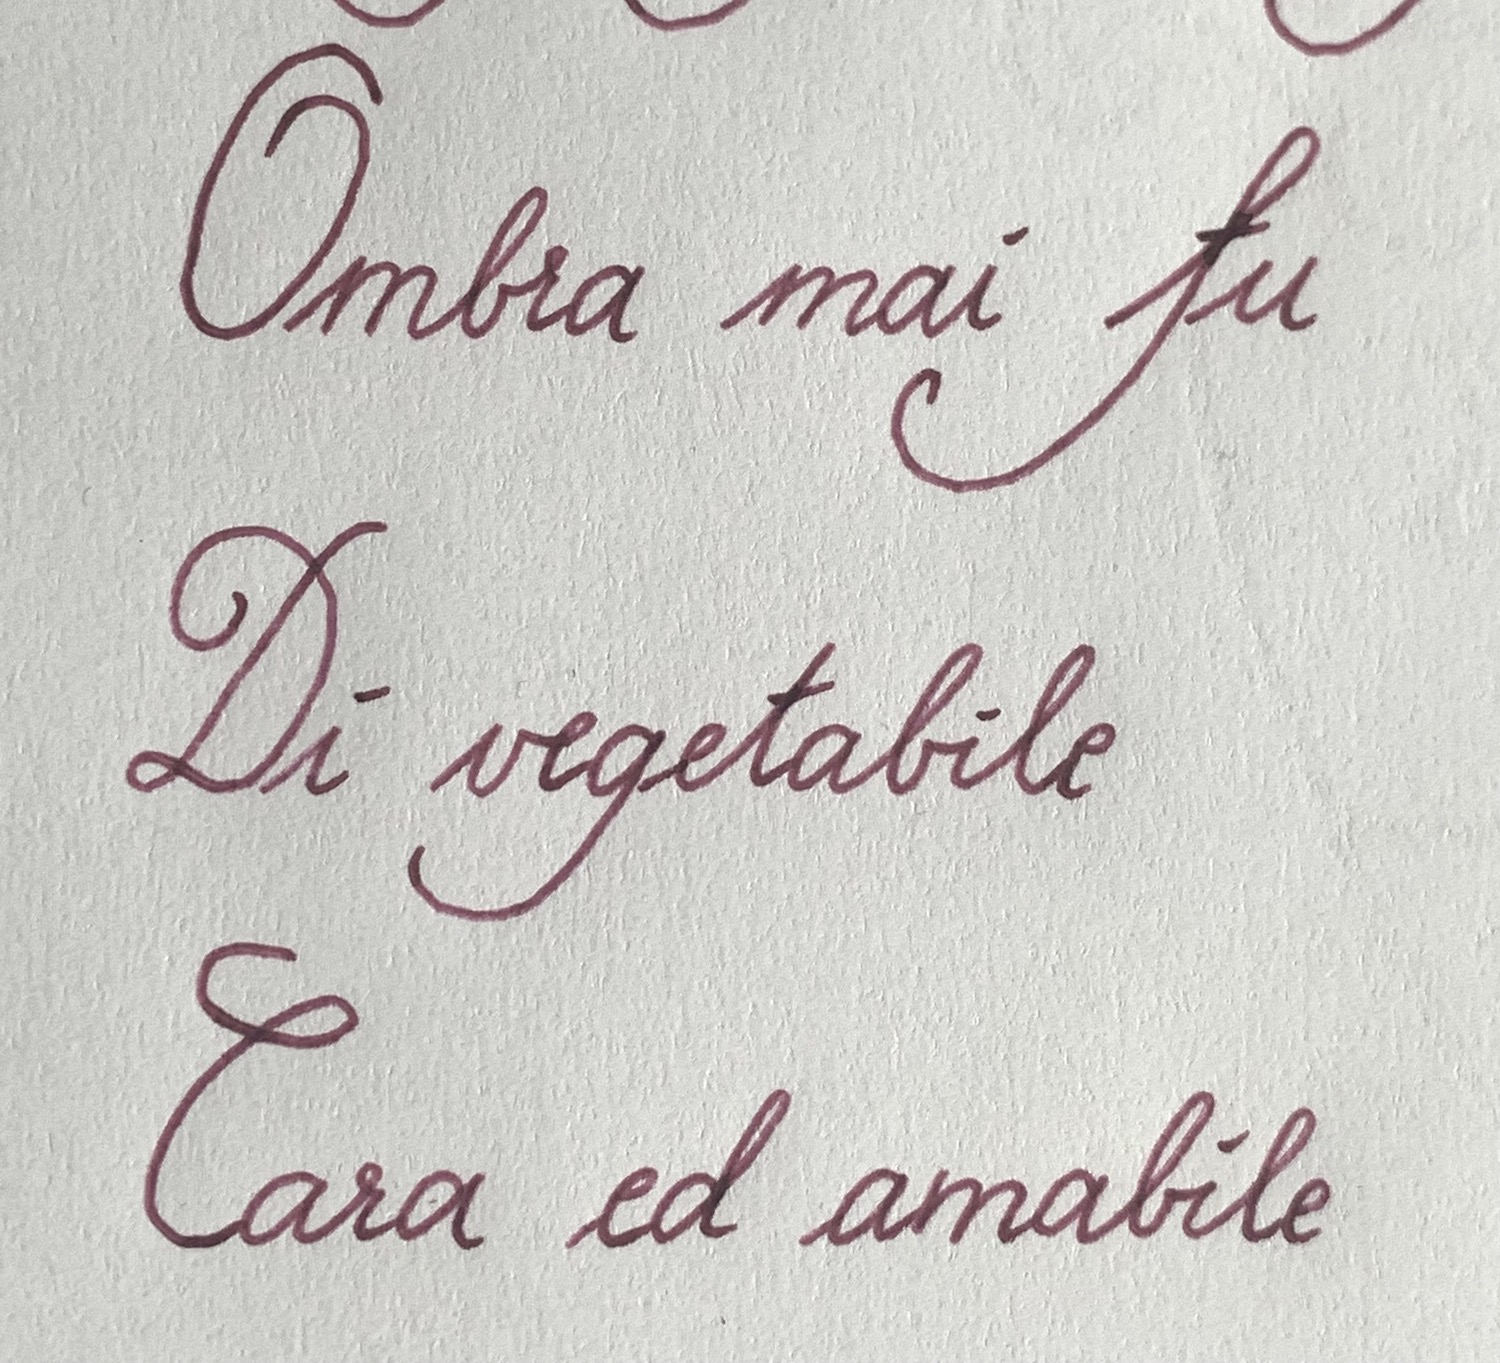 Ombra mai fu
Di vegetabile
Cara ed amabile